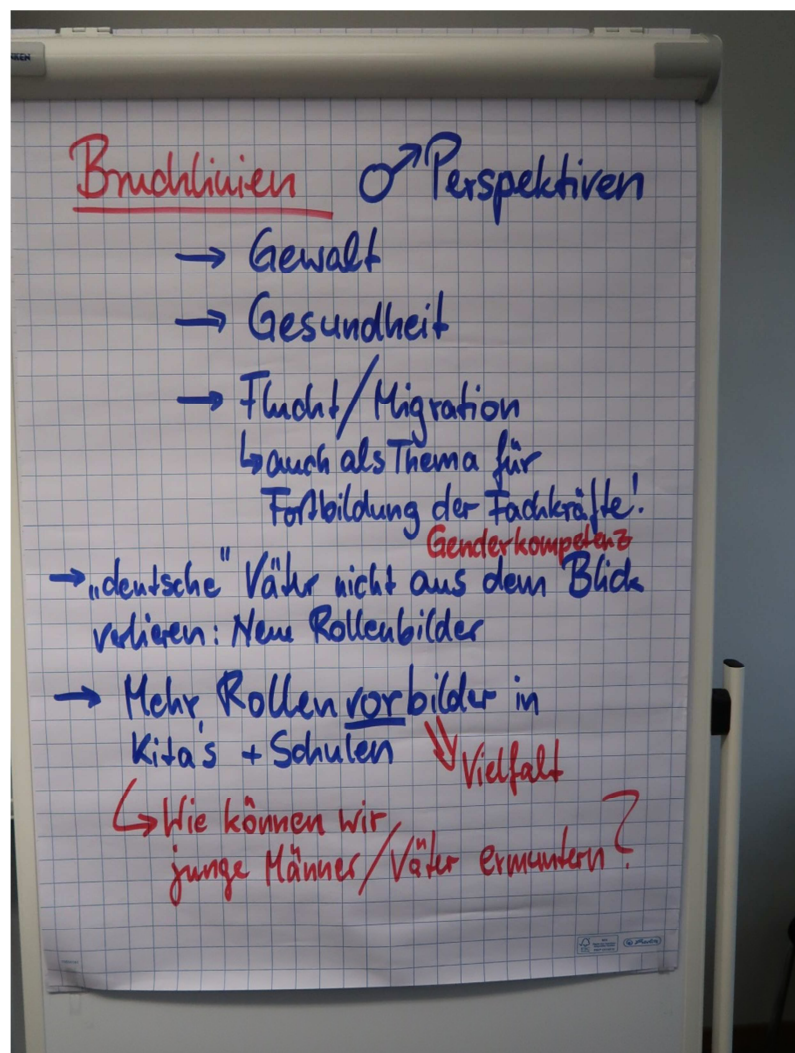 Bruchlinien ♂ Perspektiven
→ Gewalt
→ Gesundheit
→ Flucht/Migration
↳ auch als Thema für
Fortbildung der Fachkräfte!
Genderkompetenz
→ „deutsche" Väter nicht aus dem Blick
verlieren: Neue Rollenbilder
→ Mehr Rollenvorbilder in
Kita's + Schulen
Vielfalt
↳ Wie können wir
junge Männer/Väter ermuntern?